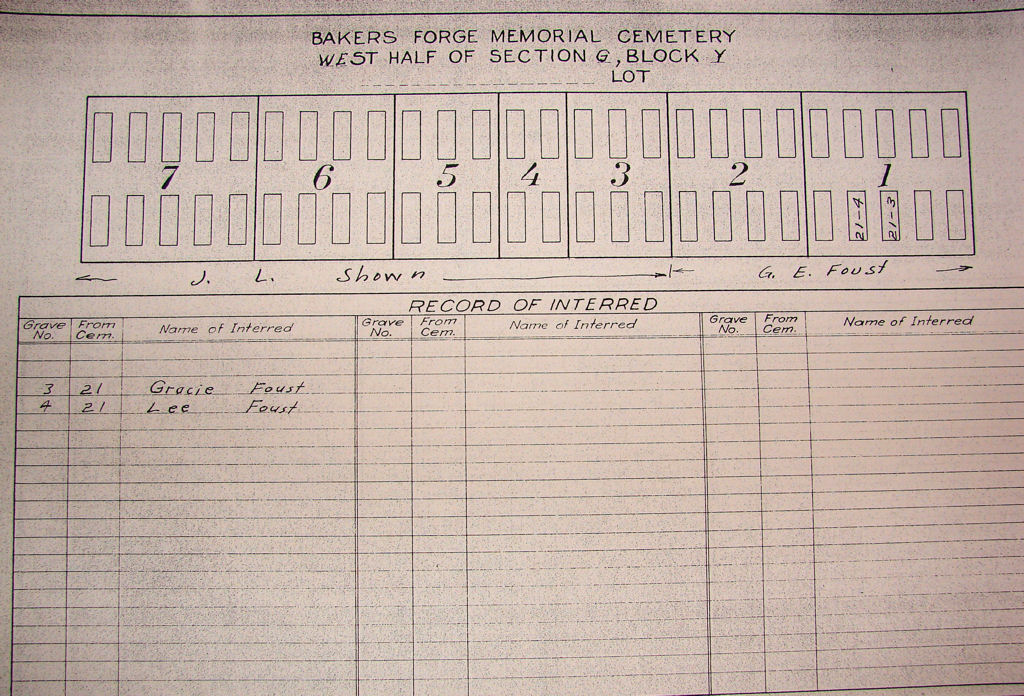 BAKERS FORGE MEMORIAL CEMETERY
WEST HALF OF SECTION G, BLOCK Y
LOT
7 6 5 4 3 2 1
21-4 21-3
J. L. Shown G. E. Foust
RECORD OF INTERRED
Grave No. From Cem. Name of Interred Grave No. From Cem. Name of Interred Grave No. From Cem. Name of Interred
3 21 Gracie Foust
4 21 Lee Foust